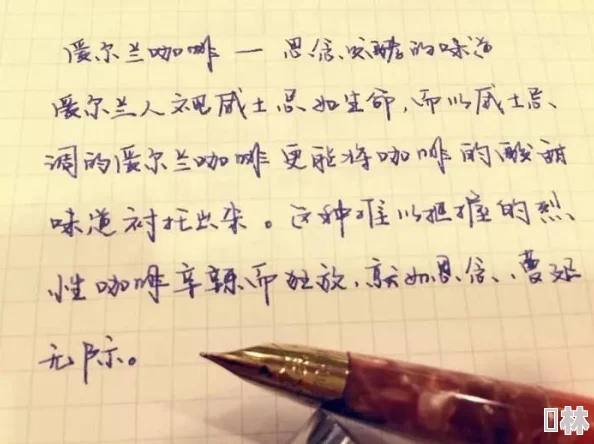 爱尔兰咖啡 — 思念发酵的味道
爱尔兰人视威士忌如生命,而以威士忌
调的爱尔兰咖啡更能将咖啡的酸甜
味道衬托出来。这种难以把握的烈
性咖啡辛辣而狂放,就如思念,蔓延
无际。
林